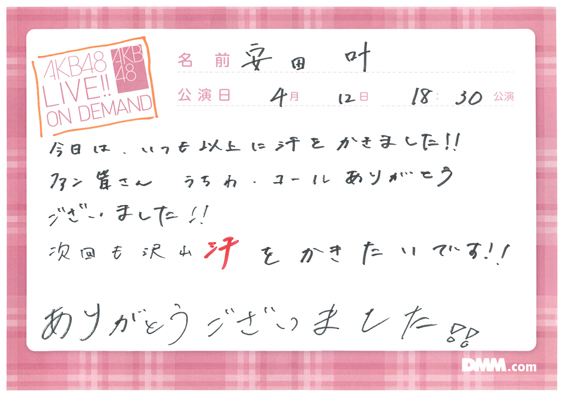 AKB48
LIVE!!
ON DEMAND
AKB
48
名前 安田 叶
公演日 4月 12日 18:30 公演
今日は、いつも以上に汗をかきました!!
ファン皆さん うちわ、コールありがとう
ございました!!
次回も沢山汗をかきたいです!!
ありがとうございました!!
DMM.com